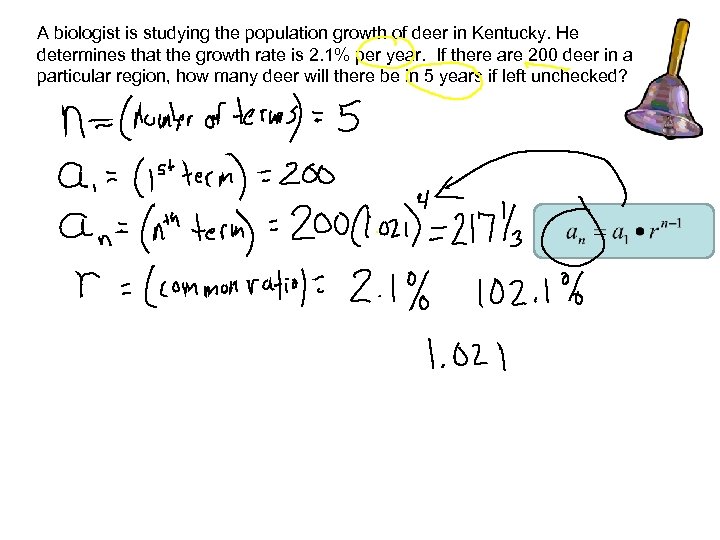 A biologist is studying the population growth of deer in Kentucky. He
determines that the growth rate is 2.1% per year. If there are 200 deer in a
particular region, how many deer will there be in 5 years if left unchecked?
n = (number of terms) = 5
a₁ = (1st term) = 200
aₙ = (nth term) = 200(1.021)⁴ = 217 1/3
aₙ = a₁ • rⁿ⁻¹
r = (common ratio) = 2.1% 102.1%
1.021